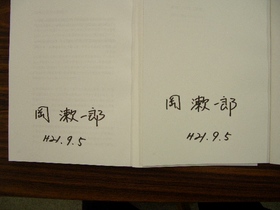 岡 漱一郎
H21.9.5
岡 漱一郎
H21.9.5